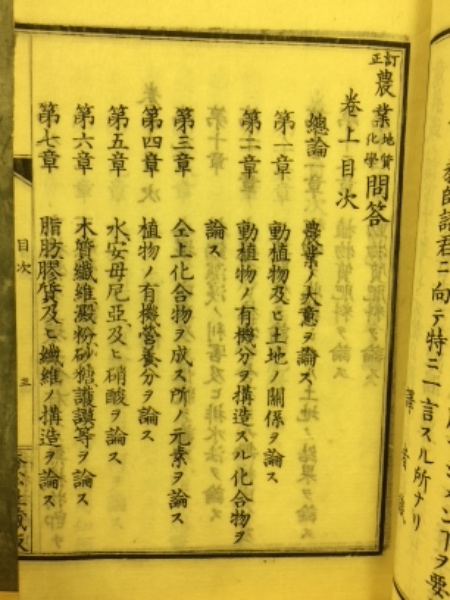 訂正農業地質化學問答
卷上目次
總論 農業ノ大意ヲ論ス
第一章 動植物及ヒ土地ノ關係ヲ論ス
第二章 動植物ノ有機分ヲ構造スル化合物ヲ
論ス
第三章 仝上化合物ヲ成ス所ノ元素ヲ論ス
第四章 植物ノ有機營養分ヲ論ス
第五章 水、安母尼亞、及ヒ硝酸ヲ論ス
第六章 木質纖維澱粉砂糖護謨等ヲ論ス
第七章 脂肪膠質及ヒ纖維ノ構造ヲ論ス
目次
教師諸君ニ向テ特ニ一言スル所ナリ